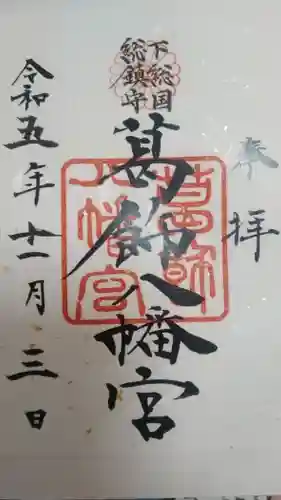 奉拝
下総国
総鎮守
葛飾八幡宮
葛飾
八幡宮
令和五年十一月三日